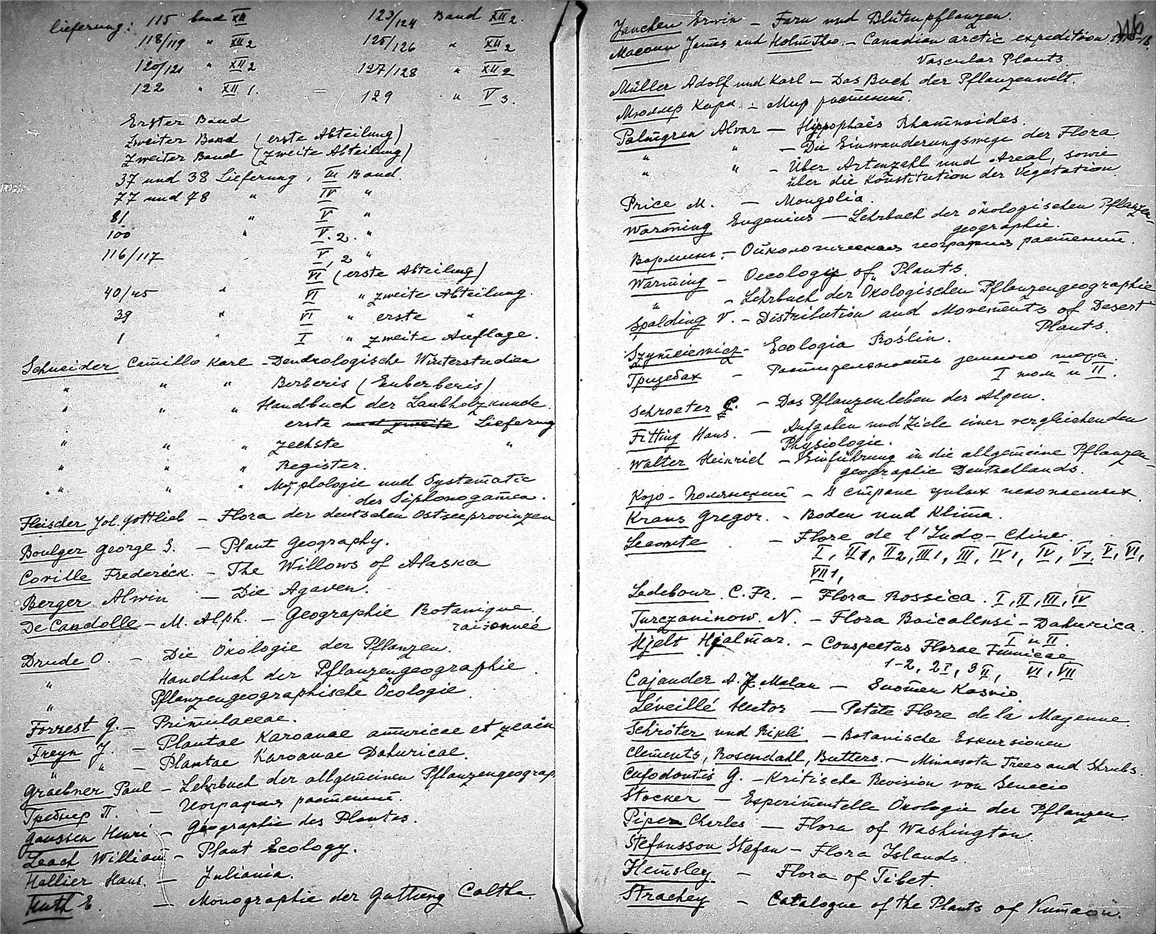 lieferung: 115 band XII 123/124 Band XII 2.
118/119 " XII 2 125/126 " XII 2
120/121 " XII 2 127/128 " XII 2
122 " XII 1. 129 " V 3.
Erster Band
Zweiter Band (erste Abteilung)
Zweiter Band (zweite Abteilung)
37 und 38 Lieferung, III Band
77 und 78 " IV "
81 " V "
100 " V. 2. "
116/117 V, 2 "
VI (erste Abteilung)
40/45 " VI " zweite Abteilung.
39 " VI " erste "
1 " I " zweite Auflage.
Schneider Camillo Karl - Dendrologische Winterstudien
" " " Berberis (Euberberis)
" " " Handbuch der Laubholzkunde.
erste und zweite Lieferung
" " " zechste "
" " " Register.
" " " Morphologie und Systematic
der Siphonogamen.
Fleischer Joh. Gottlieb - Flora der deutschen Ostseeprovinzen
Boulger George S. - Plant Geography.
Coville Frederick. - The Willows of Alaska
Berger Alwin - Die Agaven.
De Candolle - M. Alph. - Geographie Botanique
raisonneé
Drude O. - Die Ökologie der Pflanzen.
" Handbuch der Pflanzengeographie
Pflanzengeographische Ökologie
Forrest G. - Primulaceae.
Freyn J. - Plantae Karoanae amuricae et zeaën
" " - Plantae Karoanae Dahuricae.
Graebner Paul - Lehrbuch der allgemeinen Pflanzengeograp
Гребнер П. - География растений.
Gaussen Henri - Géographie des Plantes.
Leach William - Plant Ecology.
Hallier Hans. - Juliania.
Huth E - Monographie der Gattung Caltha.
116
Janchen Erwin - Farn und Blütenpflanzen.
Macoun James and Holm Theo. - Canadian arctic expedition 1913-18
Vascular Plants.
Müller Adolf und Karl - Das Buch der Pflanzenwelt.
Мюллер Карл. - Мир растений.
Palmgren Alvar - Hippophaës Rhamnoides.
" " - Die Einwanderungswege der Flora
" " - Über Artenzahl und Areal, sowie
über die Konstitution der Vegetation
Price M. - Mongolia.
Warming Eugenius - Lehrbuch der ökologischen Pflanzen-
geographie.
Варминг. - Ойкологическая география растений.
Warming - Oecology of Plants.
" - Lehrbuch der Ökologischen Pflanzengeographie
Spalding V. - Distribution and Movements of Desert
Plants.
Szymkiewicz - Ecologia Roślin.
Гризебах - Растительность земного шара
I том и II.
Schroeter C. - Das Pflanzenleben der Alpen.
Fitting Hans. - Aufgaben und Ziele einer vergleichenden
Physiologie.
Walter Heinrich - Einführung in die allgemeine Pflanzen-
geographie Deutschlands.
Козо-Полянский - В стране живых ископаемых.
Kraus Gregor. - Boden und Klima.
Lecomte - Flore de l'Indo-Chine.
I, II1, II2, III1, III, IV1, IV, V1, V, VI,
VII1,
Ledebour C. Fr. - Flora Rossica. I, II, III, IV
Turczaninow N. - Flora Baicalensi-Dahurica.
I и II.
Hjelt Hjalmar. - Conspectus Florae Fennicae
1-2, 2I, 3II, VI, VII
Cajander A. K. - Suomen Kasvio
Léveillé Hector - Petite Flore de la Mayenne
Schröter und Rikli - Botanische Exkursionen
Clements, Rosendahl, Butters. - Minnesota Trees and Shrubs.
Cufodontis G. - Kritische Revision von Senecio
Stocker - Experimentelle Ökologie der Pflanzen
Piper Cherles - Flora of Washington
Stefansson Stefan - Flora Islands.
Hemsley - Flora of Tibet.
Strachey - Catalogue of the Plants of Kumaon.